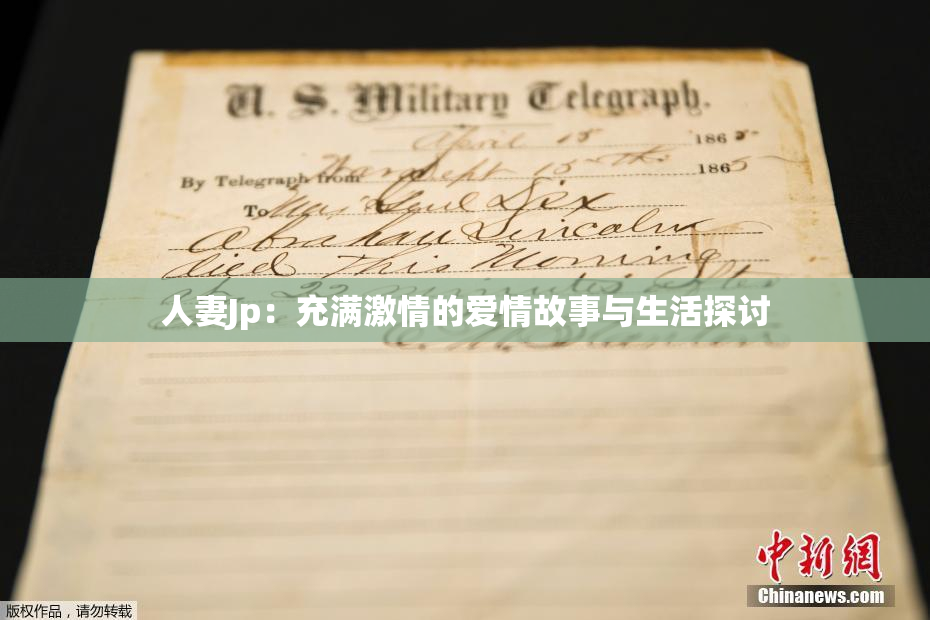 U. S. Military Telegraph.
April 15 1865
By Telegraph from War Dept 15th 1865
To Maj Genl Dix
Abraham Lincoln
died This Morning
at 22 minutes after
人妻Jp：充满激情的爱情故事与生活探讨
E. M. Stanton
中新网
Chinanews.com
版权作品，请勿转载